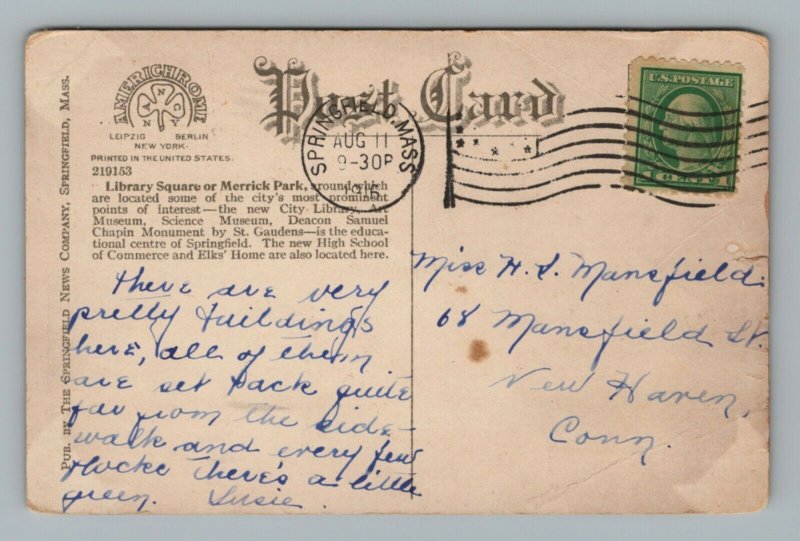 AMERICHROME
A N C Y N
LEIPZIG BERLIN
NEW YORK
PRINTED IN THE UNITED STATES.
219153
Post Card
SPRINGFIELD, MASS
AUG 11
9-30P
U.S. POSTAGE
1 CENT 1
Library Square or Merrick Park, around which
are located some of the city's most prominent
points of interest—the new City Library, Art
Museum, Science Museum, Deacon Samuel
Chapin Monument by St. Gaudens—is the educa-
tional centre of Springfield. The new High School
of Commerce and Elks' Home are also located here.
PUB. BY THE SPRINGFIELD NEWS COMPANY, SPRINGFIELD, MASS.
There are very
pretty buildings
here, all of them
are set back quite
far from the side-
walk and every few
blocks there's a little
green. Susie.
Miss H. S. Mansfield.
68 Mansfield St.
New Haven,
Conn.